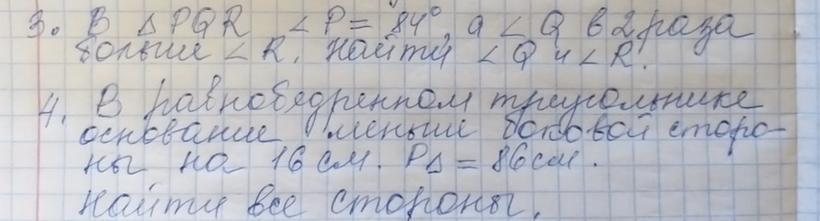 3. В △PQR ∠P = 84°, а ∠Q в 2 раза
больше ∠R. Найти ∠Q и ∠R.
4. В равнобедренном треугольнике
основание меньше боковой сторо-
ны на 16 см. P△ = 86 см.
Найти все стороны.